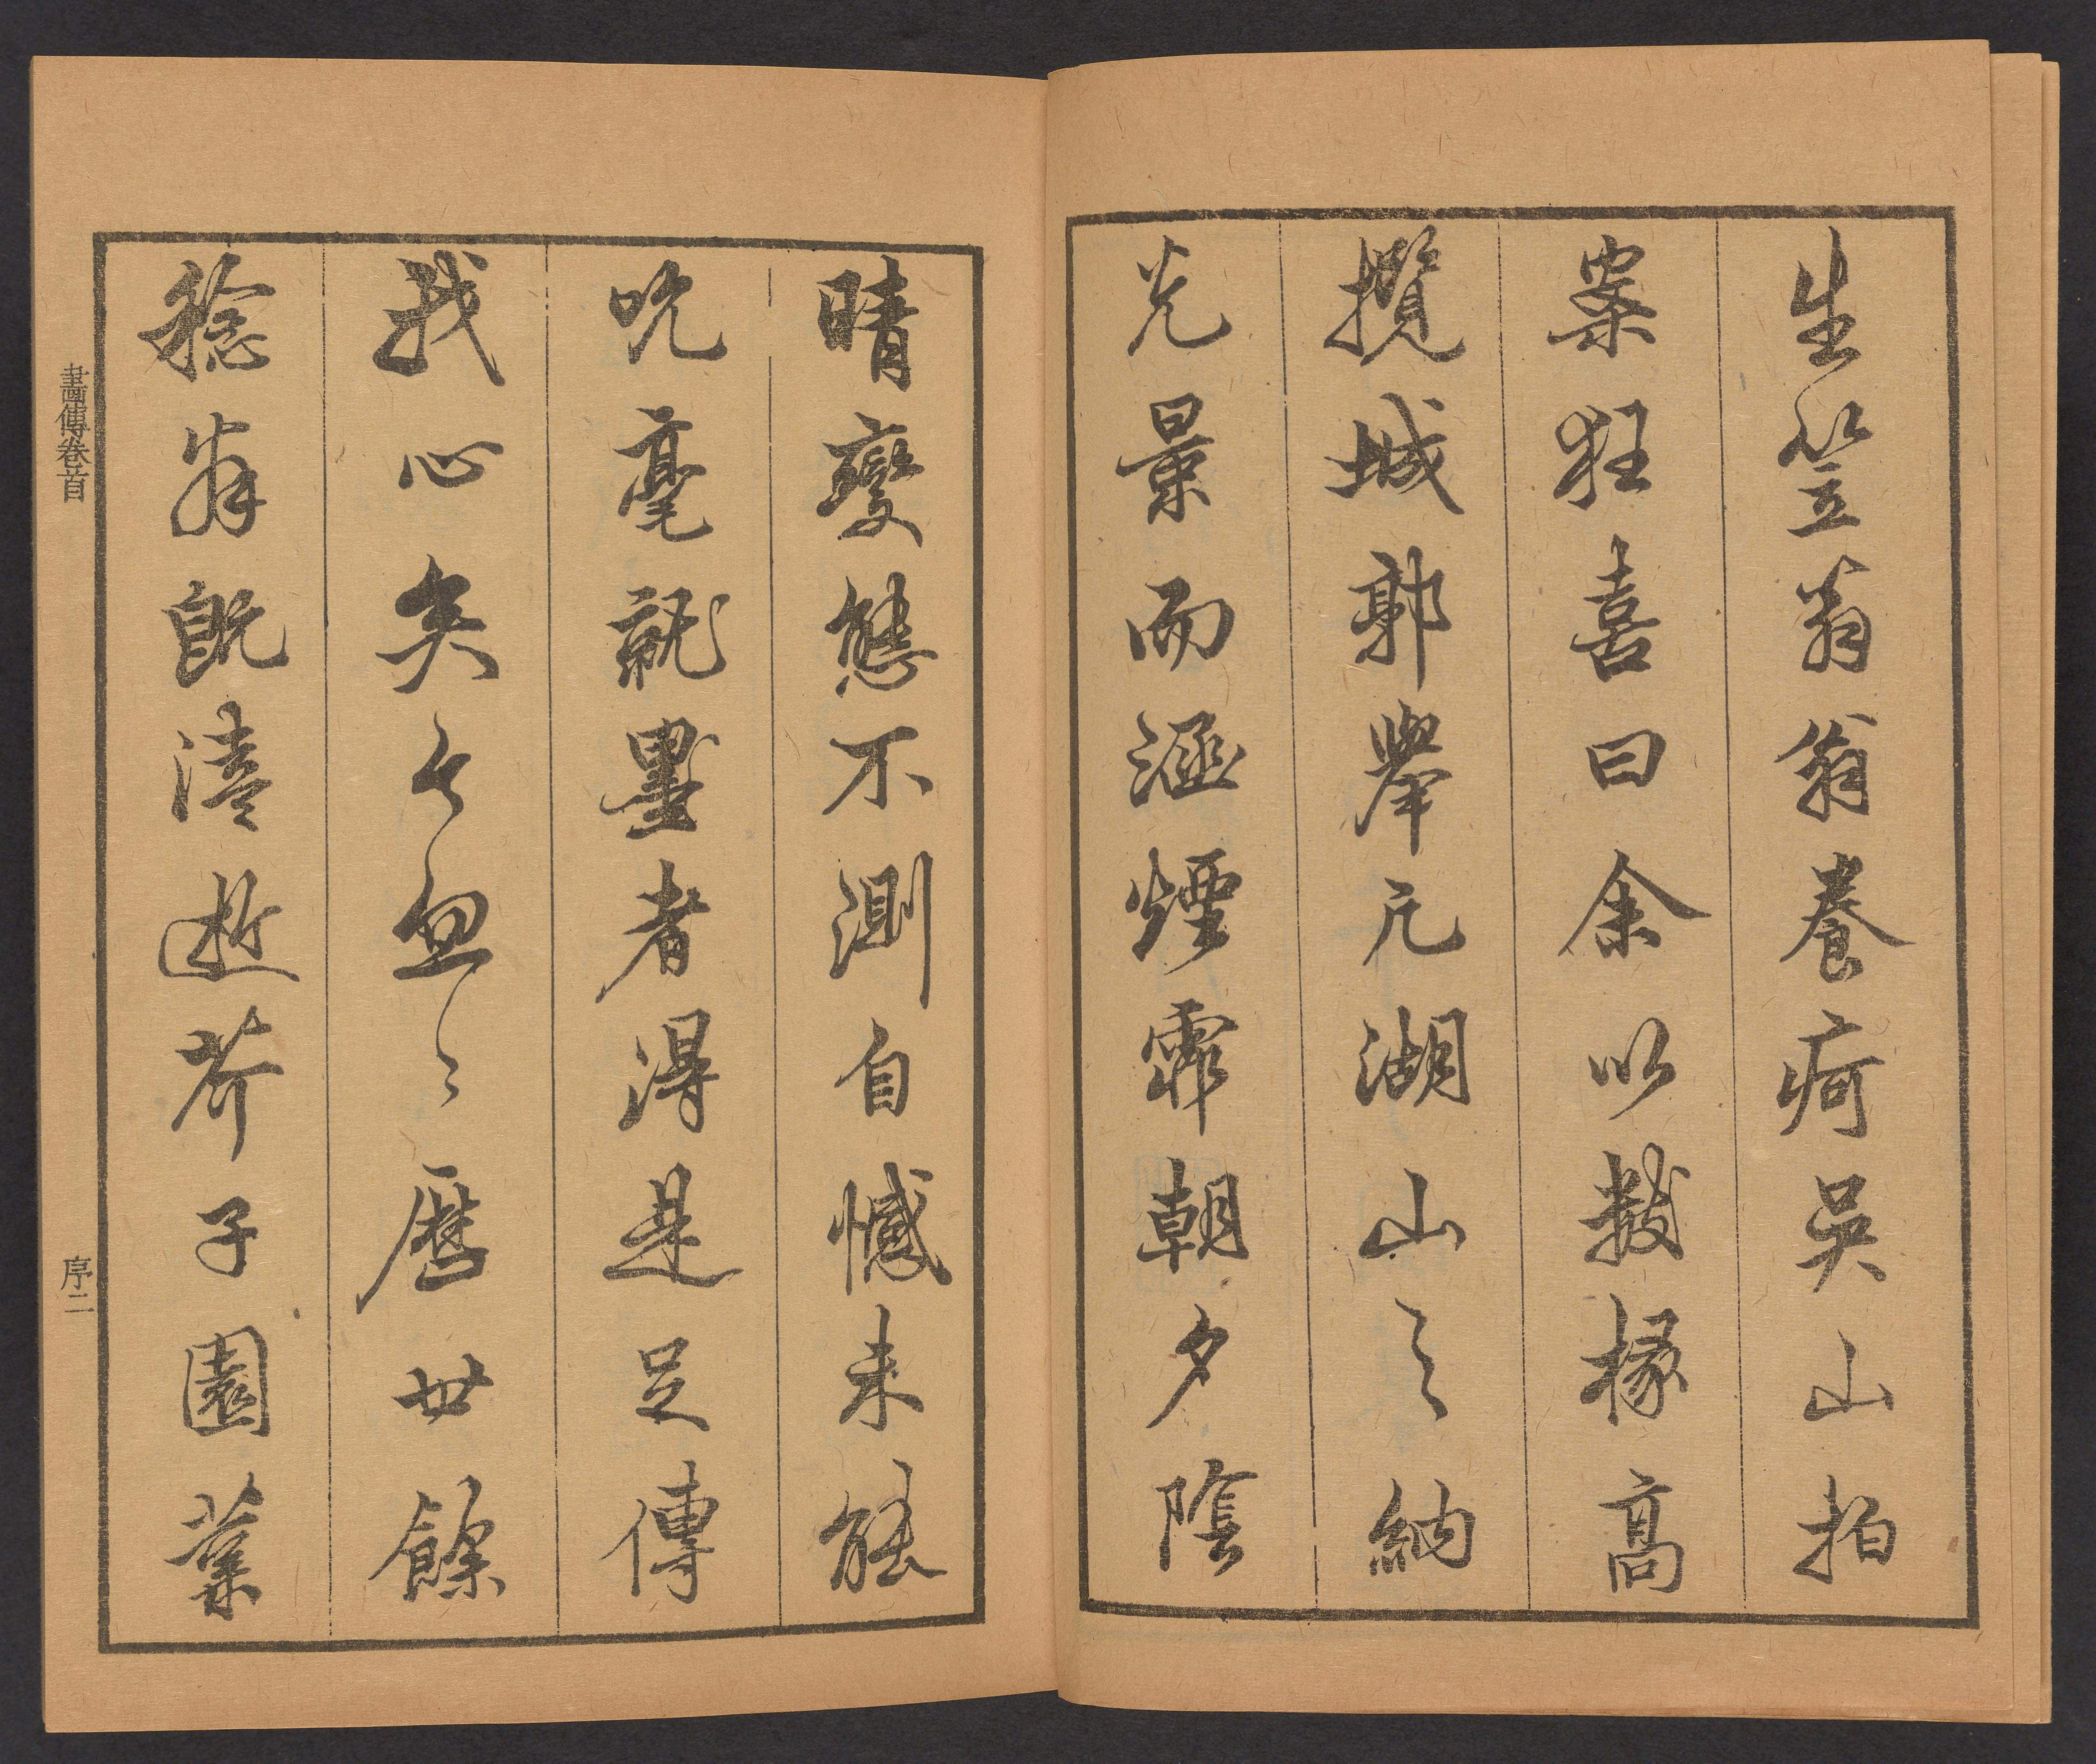 生笠翁翁養疴吳山拍
案狂喜曰余以數椽高
攬城郭舉凡湖山之納
光景而涵煙霏朝夕陰
晴變態不測自憾未能
吮毫就墨者得是足傳
我心矣乃忽忽歷廿餘
稔翁既溘逝芥子園業
畫傳卷首
序二